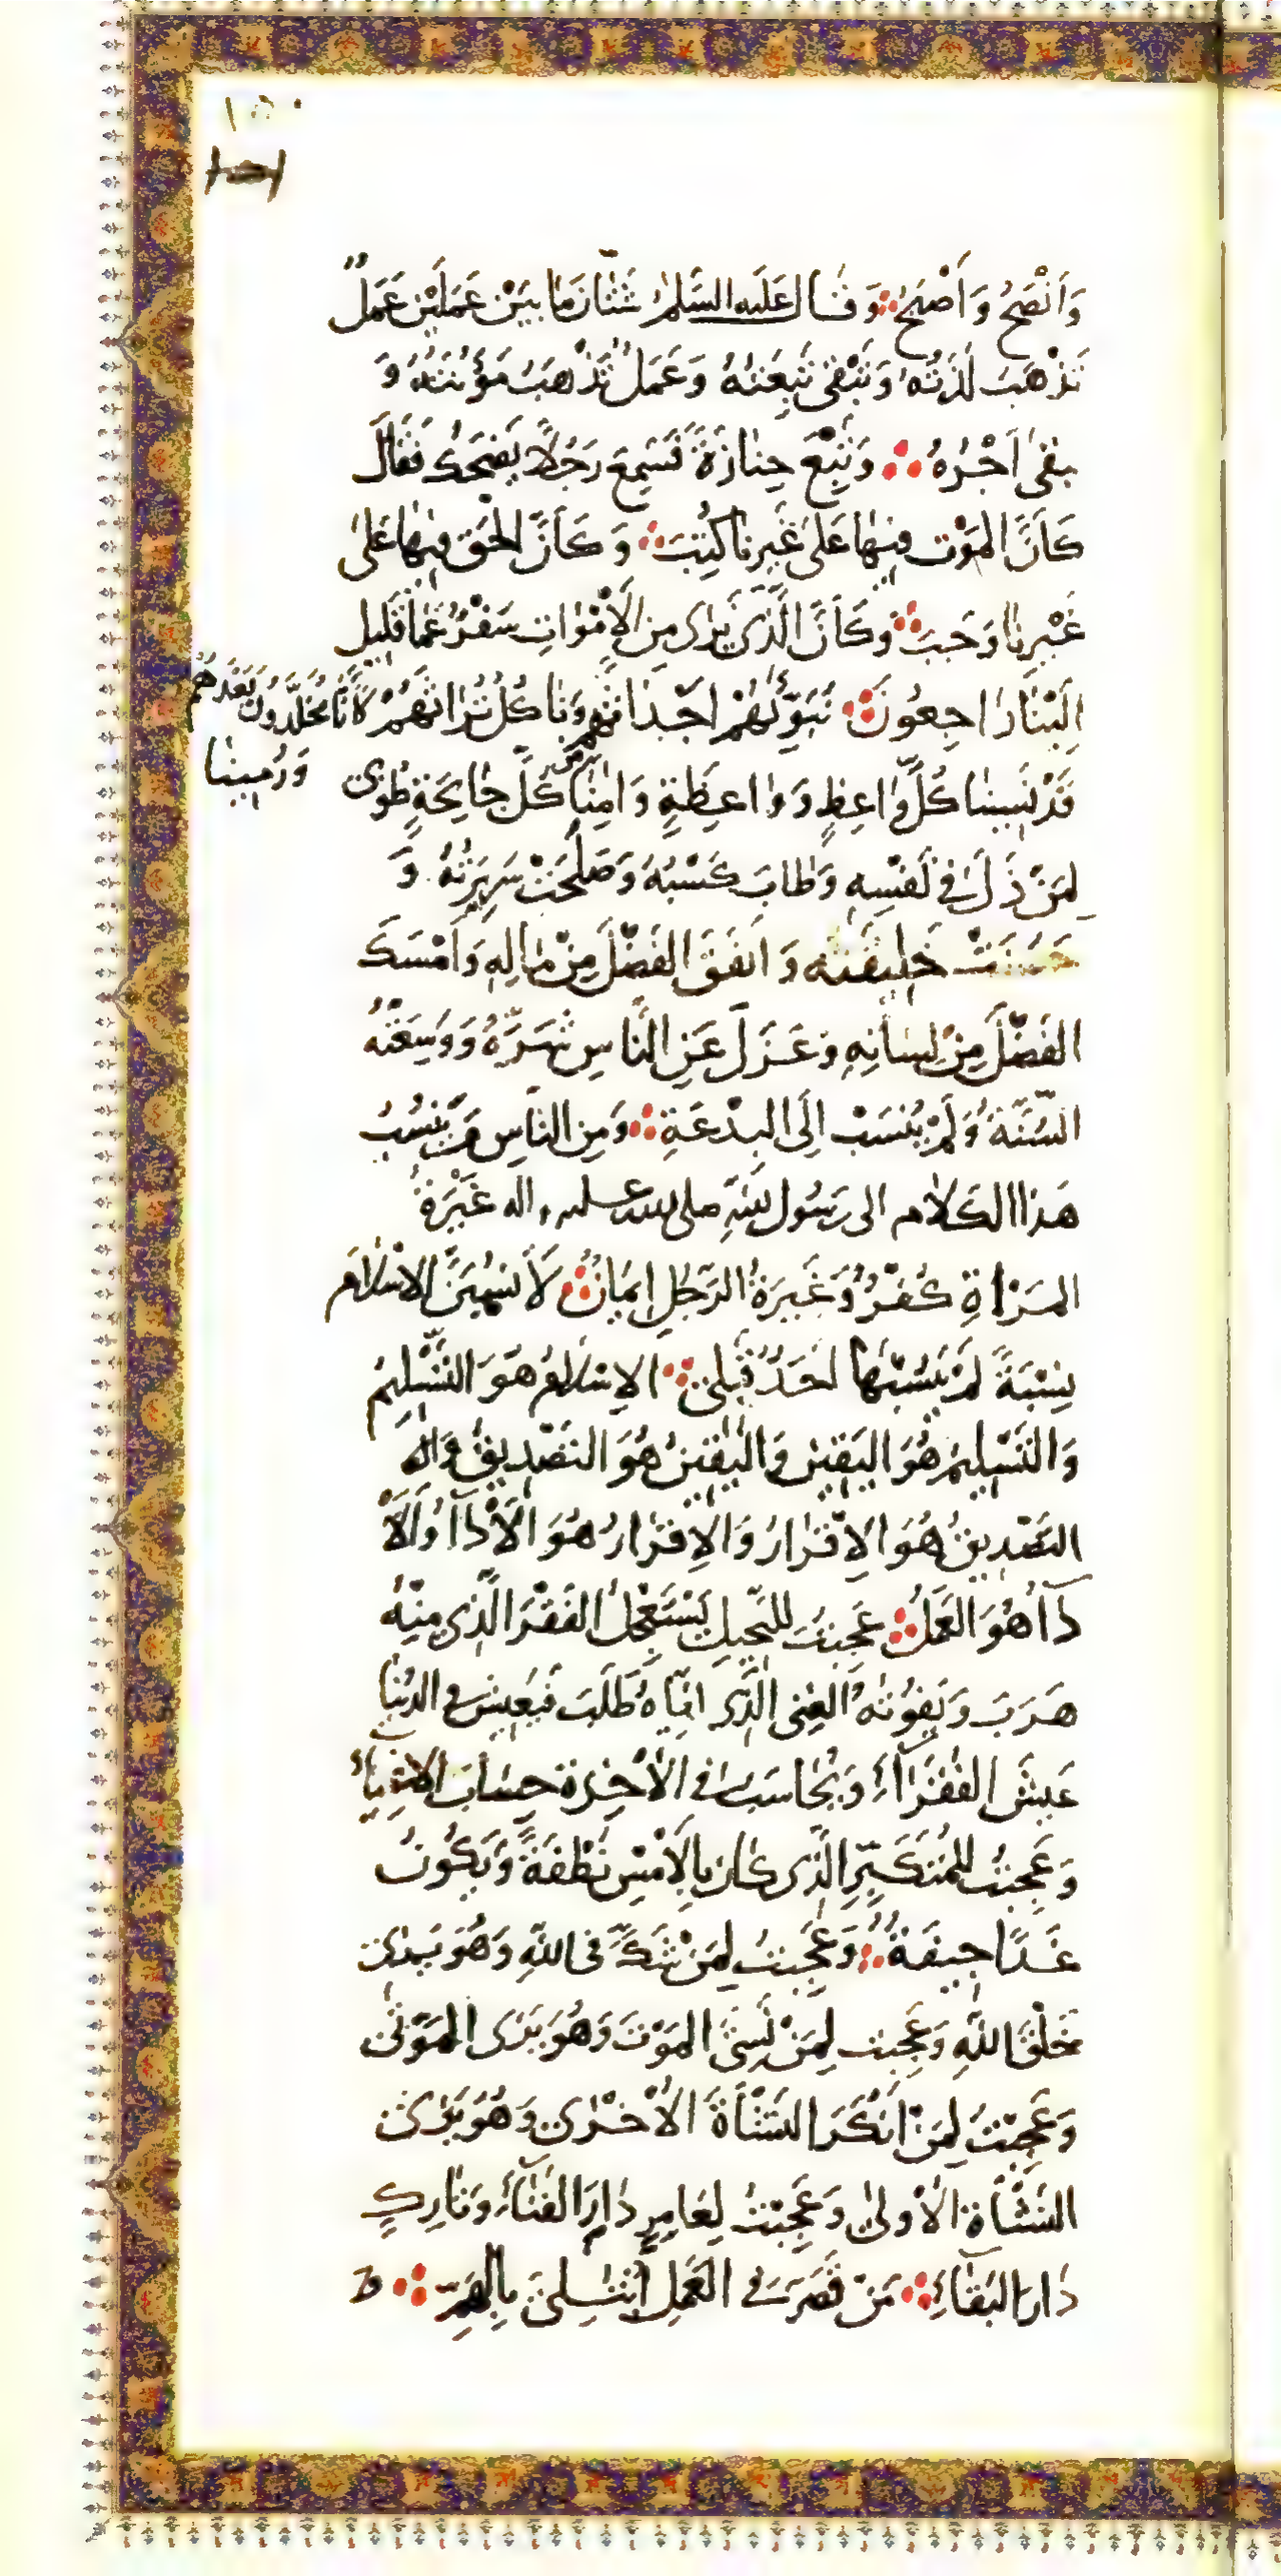 ١٥٠
وَاَنْصَحُ وَاَصْبَحُ وَقَالَ عَلَيهِ السَّلٰمُ شَتّٰانَ مٰا بَيْنَ عَمَلَيْنِ عَمَلٌ
تَذْهَبُ لَذَّتُهُ وَتَبْقٰى تَبِعَتُهُ وَعَمَلٌ تَذْهَبُ مَؤُنَتُهُ وَ
يبقىٰ اَجْرُهُ وَتَبِعَ جِنٰازَةً فَسَمِعَ رَجُلًا يَضْحَكُ فَقٰالَ
كَاَنَّ المَوْتَ فيهٰا عَلىٰ غَيرِنٰا كُتِبَ وَكَاَنَّ الْحَقَ فيهٰا عَلىٰ
غَيْرِنٰا وَجَبَ وَكَاَنَّ الَّذى نَرٰى مِنَ الْاَمْوٰاتِ سَفْرٌ عَمّٰا قَليلٍ
اِلَيْنٰا رٰاجِعُونَ نُبَوِّئُهُمْ اَجْدٰاثَهُم وَنٰاكُلُ تُرٰاثَهُمْ كَاَنّٰا مُخَلَّدُونَ بَعْدَهُمْ
قَدْ نَسينٰا كُلَّ وٰاعِظٍ وَوٰاعِظَةٍ وَاَمِنّٰا مِن كُلَّ جٰائِحَةٍ طُوبىٰ
وَرُمينٰا
لِمَنْ ذَلَّ فى نَفْسِهِ وَطٰابَ كَسْبُهُ وَصَلُحَتْ سَرِيرَتُهُ وَ
حَسُنَتْ خَليقَتُه وَاَنفَقَ الفَضْلَ مِنْ مٰالِهِ وَاَمْسَكَ
الفَضْلَ مِنْ لِسٰانِهِ وَعَزَلَ عَنِ النّٰاسِ شَرَّهُ وَوَسِعَتْهُ
السُّنَّةُ وَلَمْ يُنسَبْ اِلَى البِدْعَةِ وَمِنَ النّٰاسِ مَن يَنْسُبُ
هٰذَا الكَلٰام الى رَسُولِ اللهِ صلى الله عليه واله غَيْرَةُ
المَرْاَةِ كُفْرٌ وَغَيرَةُ الرَّجُلِ ايمٰانٌ لَاَنسُبَنَّ الاِسْلٰامَ
نِسْبَةً لَمْ يَنسُبْهٰا اَحَدٌ قَبلى الاِسْلٰامُ هُوَ التَّسْليمُ
وَالتَّسْليمُ هُوَ اليَقينُ وَاليَقينُ هُوَ التَّصْديقُ وَ
التَّصْديقُ هُوَ الاِقْرٰارُ وَالاِقرٰارُ هُوَ الْاَدٰآءُ وَالْاَ
دٰآءُ هُوَ العَمَلُ عَجِبتُ لِلبَخيلِ يَسْتَعْجِلُ الفَقْرَ الَّذى مِنْهُ
هَرَبَ وَيَفُوتُهُ الْغِنَى الَّذى اِيّٰاهُ طَلَبَ فَيَعيشُ فى الدُّنيٰا
عَيشَ الفُقَرٰآءِ وَيُحٰاسَبُ فى الْاٰخِرَةِ حِسٰابَ الاَغنِيٰآءِ
وَعَجِبتُ لِلمُتَكَبِّرِ الَّذى كٰانَ بِالاَمْسِ نُطْفَةً وَيَكُونُ
غَدًا جيفَةً وَعَجِبتُ لِمَنْ شَكَّ فى اللهِ وَهُوَ يَرٰى
خَلْقَ اللهِ وَعَجِبتُ لِمَنْ نَسِىَ المَوْتَ وَهُوَ يَرَى المَوْتىٰ
وَعَجِبْتُ لِمَنْ اَنْكَرَ النَّشْاَةَ الْاُخْرٰى وَهُوَ يَرَى
النَّشْاَةَ الْاُولىٰ وَعَجِبْتُ لِعٰامِرٍ دٰارَ الفَنٰآءِ وَتٰارِكٍ
دٰارَ البَقٰآءِ مَنْ قَصَّرَ فى العَمَلِ اُبْتُلِىَ بِالهَمِّ وَ